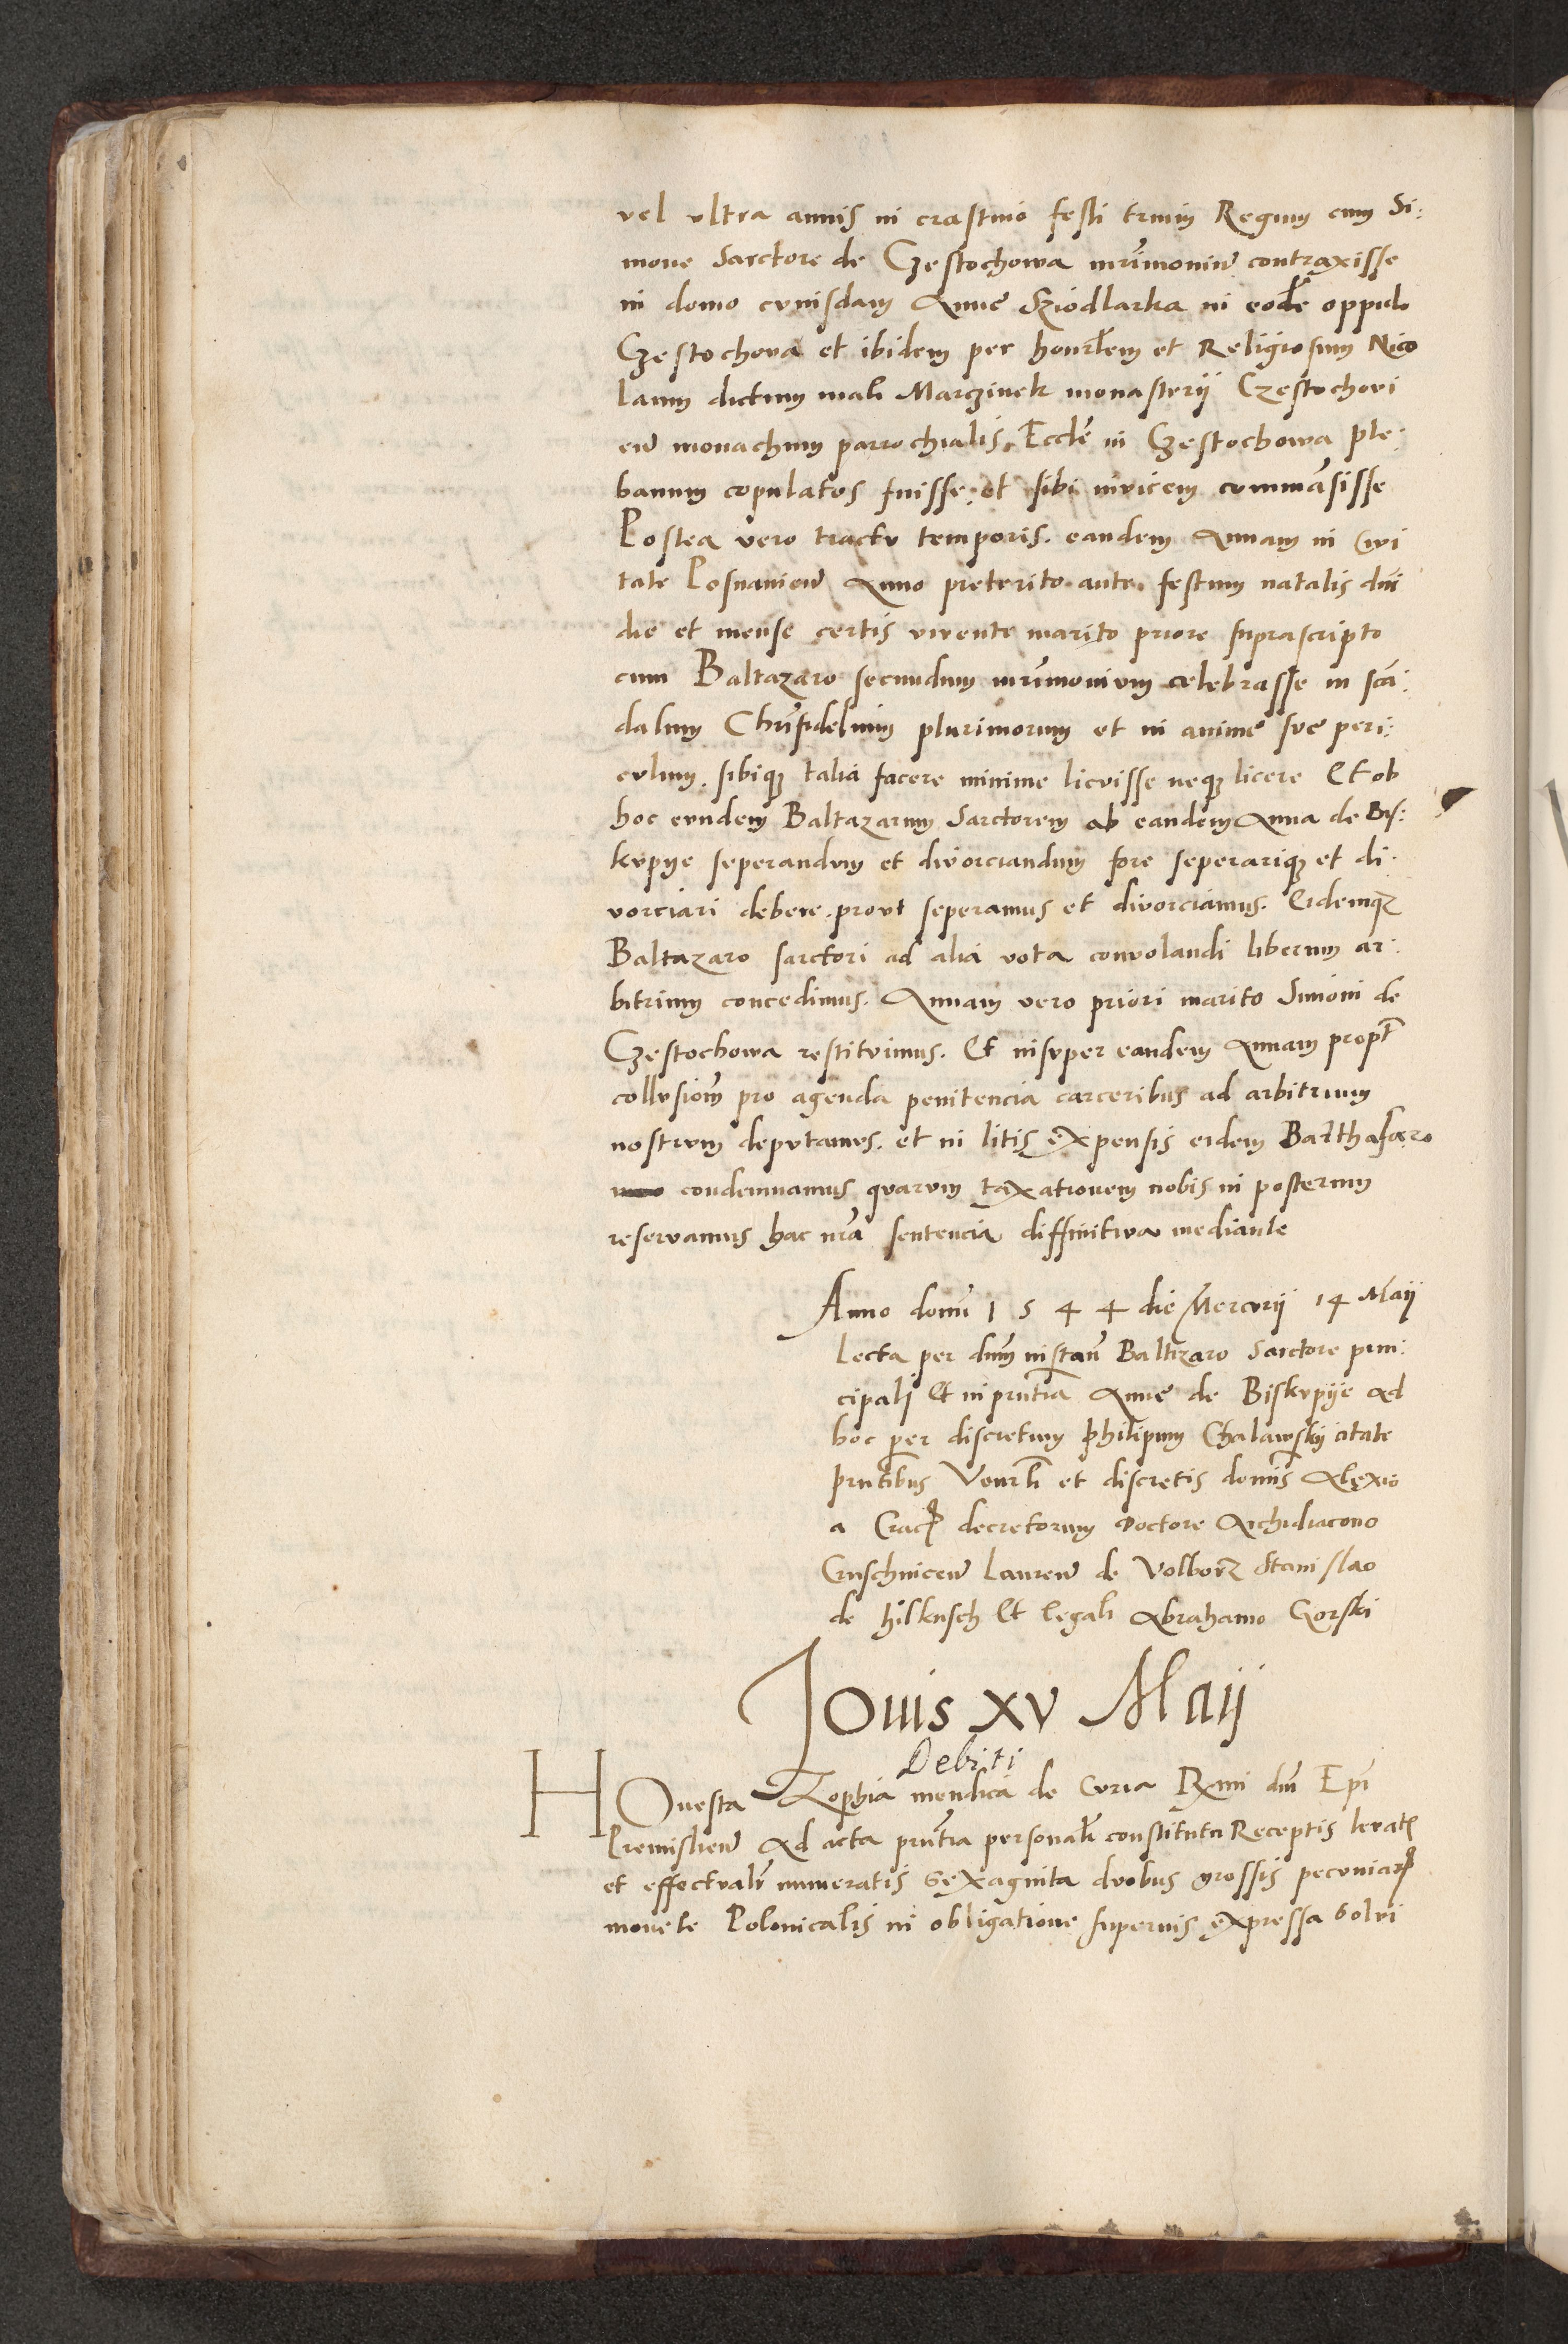 vel vltra annis in crastino festi trium Regum cum Si:
mone Sarctore de Czestochowa mr̄imoniū contraxisse
in domo cuiusdam Anne Sziodlarka in eodē oppido
Czestochova et ibidem per honorłem et Religiosum Nico
laum dictum mali Marczinek monasterij Czestochovi
eñ monachum parrochialis Eccłē in Czestochowa ple:
banum copulatos fuisse et sibi invicem commāsisse
Postea vero tractu temporis. eandem Annam in Civi
tate Posnanieñ Anno preterito ante festum natalis dn̄i
die et mense certis vivente marito priore suprascripto
cum Baltazaro secundum mr̄imonium celebrasse in scā:
dalum Chr̄ifidelium plurimorum et in anime sve peri:
culum. sibiqꝫ talia facere minime licvisse neqꝫ licere Et ob
hoc eundem Baltazarum Sarctorem ab eandem Anna de Bis:
kvpye seperandum et divorciandum fore seperariqꝫ et di:
vorciari debere. provt seperamus et divorciamus. Eidemqꝫ
Baltazaro sarctori ad alia vota convolandi liberum ar:
bitrium concedimus. Annam vero priori marito Simoni de
Czestochowa restituimus. Et insvper eandem Annam propt̄
collvsionē̄ pro agenda penitencia carceribus ad arbitrium
nostrum depvtamus. et in litis expensis eidem Balthasaro
condemnamus quarvm taxationem nobis in posterum
reservamus hac nr̄a sentencia diffinitiva mediante
Anno domī 1544 die Mercvrij 14 Maij
Lecta per dn̄m instañ Baltizaro Sarctore prin:
cipali Et in prn̄tia Anne de Biskvpije ad
hoc per discretum Philipum Chalawskij citate
prn̄tibus Venerł̄i et discretis domīs Alexio
a Crac decretorum Doctore Archidiacono
Cruschviceñ Laureñ de Volborz Stanislao
de hilkusch Et legali Abrahamo Gorski
Jouis XV Maij
Debiti
Honesta Zophia mendica de Curia Rxmi dn̄i Ep̄i
Premislieñ Ad acta prn̄tia personał̄r constituta Receptis levatꝭ
et effectualr̄ numeratis Sexaginta dvobus grossis pecuniarꝫ
monete Polonicalis in obligatione supervis expressa Solvi